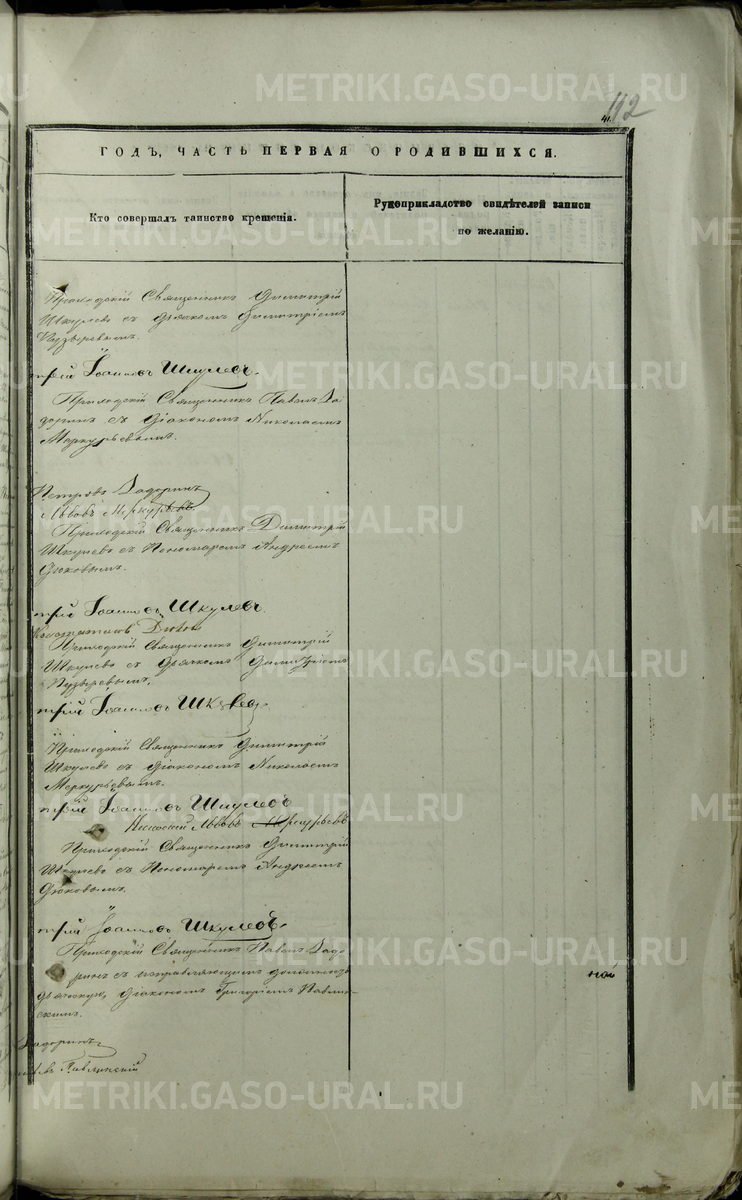 METRIKI.GASO-URAL.RU
112
ГОДЪ, ЧАСТЬ ПЕРВАЯ О РОДИВШИХСЯ.
Кто совершалъ таинство крещенія.
Рукоприкладство свидѣтелей записи
по желанію.
Приходскій Священникъ Димитрій
Шкулевъ съ Дьячкомъ Димитріемъ
Пузыревымъ.
трій Іоанновъ Шкулевъ.
Приходскій Священникъ Павелъ За-
доринъ съ Діакономъ Николаемъ
Меркурьевымъ.
Петровъ Задоринъ
Львовъ Меркурьевъ
Приходскій Священникъ Димитрій
Шкулевъ съ Пономаремъ Андреемъ
Дюковымъ.
трій Іоанновъ Шкулевъ.
Дюковъ
Приходскій Священникъ Димитрій
Шкулевъ съ Дьячкомъ Димитріемъ
Пузыревымъ.
трій Іоанновъ Шкулевъ
Приходскій Священникъ Димитрій
Шкулевъ съ Діакономъ Николаемъ
Меркурьевымъ.
трій Іоанновъ Шкулевъ
Николай Львовъ Меркурьевъ
Приходскій Священникъ Димитрій
Шкулевъ съ Пономаремъ Андреемъ
Дюковымъ.
трій Іоанновъ Шкулевъ.
Приходскій Священникъ Павелъ Задо-
ринъ съ исправляющимъ должность
дьяческую, Діакономъ Григоріемъ Павлин-
скимъ.
Задоринъ
Павлинскій